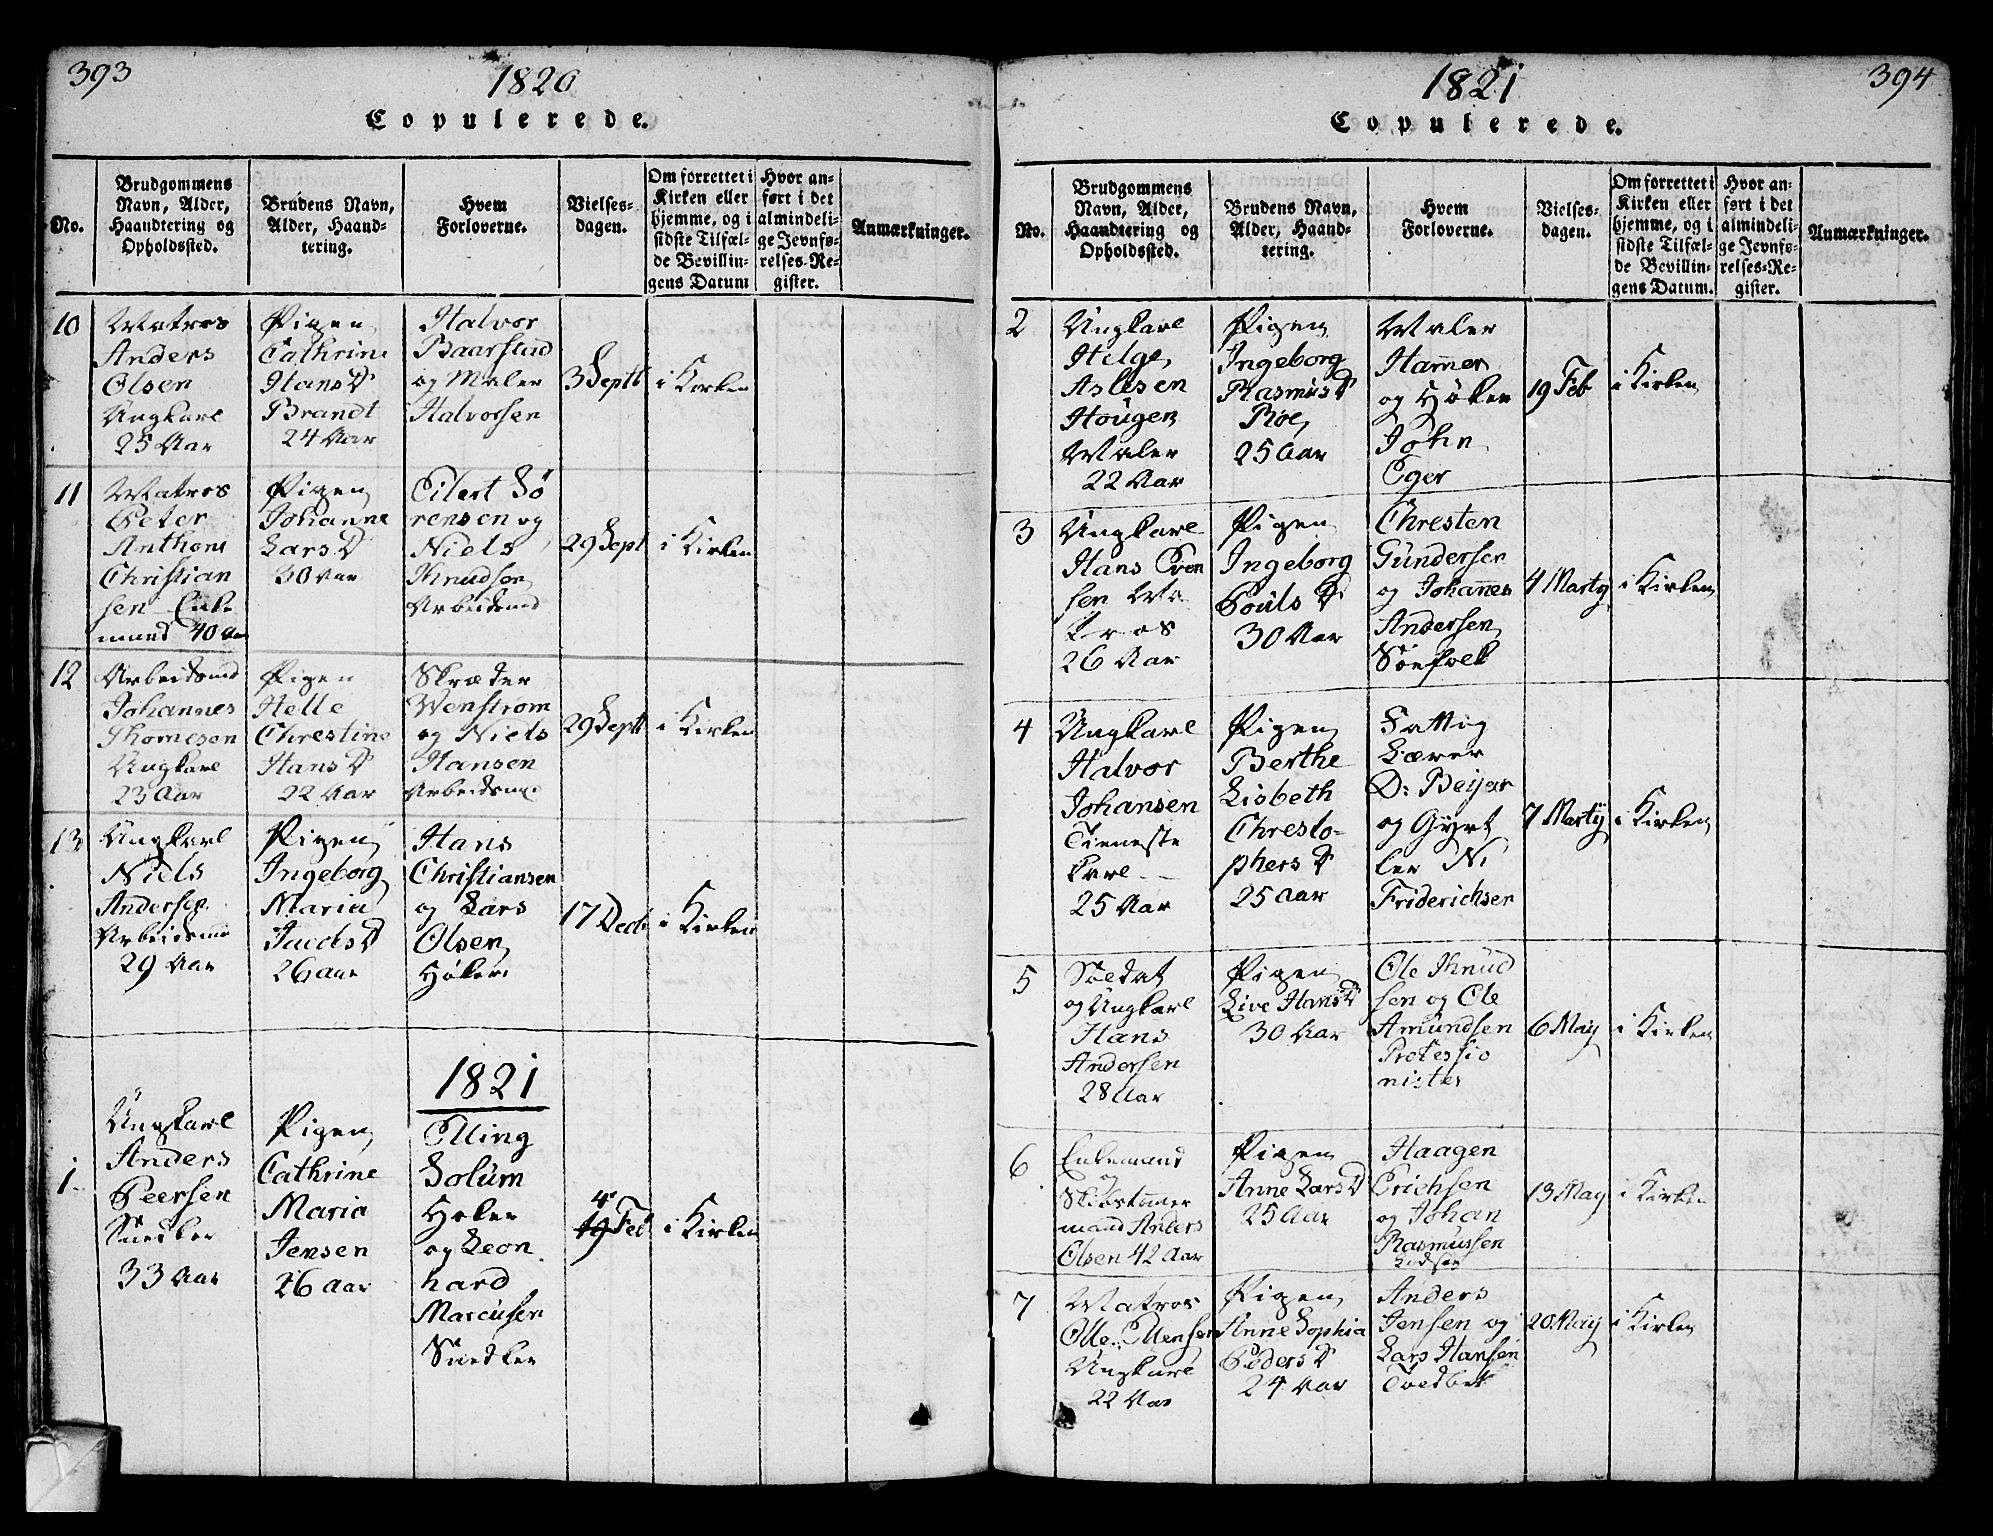 393
1820
Copulerede.
No.
Brudgommens
Navn, Alder,
Haandtering og
Opholdssted.
Brudens Navn,
Alder, Haand-
tering.
Hvem
Forloverne.
Vielses-
dagen.
Om forrettet i
Kirken eller
hjemme, og i
sidste Tilfæl-
de Bevillin-
gens Datum
Hvor an-
ført i det
almindeli-
ge Jevnfø-
relses-Re-
gister.
Anmærkninger.
10
Matros
Anders
Olsen
Ungkarl
25 Aar
Pigen
Cathrine
Hans D
Brandt
24 Aar
Halvor
Baarstud
og Maler
Halvorsen
3 Septb
i Kirken
11
Matros
Peter
Anthoni
Christian
sen Enke
mand 40 Aar
Pigen
Johanne
Lars D
30 Aar
Eilert Sö
rensen og
Niels
Knudsen
Arbeidsmd
29 Sept
i Kirken
12
Arbeidsmd
Johannes
Thomesen
Ungkarl
23 Aar
Pigen
Helle
Chrestine
Hans D
22 Aar
Skræder
Wenstrøm
og Niels
Hansen
Arbeidsmd
29 Septb
i Kirken
13
Ungkarl
Niels
Andersen
Arbeidsmd
29 Aar
Pigen
Ingeborg
Maria
Jacobs D
26 aar
Hans
Christiansen
og Lars
Olsen
Høker
17 Decb
i Kirken
1821
1
Ungkarl
Anders
Peersen
Snedker
33 Aar
Pigen
Cathrine
Maria
Jensen
26 aar
Elling
Solum
Høker
og Leon
hard
Marcusen
Snedker
4
19 Feb
i Kirken
1821
394
Copulerede.
No.
Brudgommens
Navn, Alder,
Haandtering og
Opholdssted.
Brudens Navn,
Alder, Haand-
tering.
Hvem
Forloverne.
Vielses-
dagen.
Om forrettet i
Kirken eller
hjemme, og i
sidste Tilfæl-
de Bevillin-
gens Datum.
Hvor an-
ført i det
almindeli-
ge Jevnfø-
relses-Re-
gister.
Anmærkninger.
2
Ungkarl
Helge
Aslesen
Hougen
Maler
22 Aar
Pigen
Ingeborg
Rasmus D
Roe
25 Aar
Maler
Hamer
og Høker
John
Eger
19 Feb
i Kirken
3
Ungkarl
Hans Even
sen Ma
tros
26 Aar
Pigen
Ingeborg
Pouls D
30 Aar
Chresten
Gundersen
og Johannes
Andersen
Søefolk
4 Marty
i Kirken
4
Ungkarl
Halvor
Johansen
Tieneste
karl
25 Aar
Pigen
Berthe
Lisbeth
Christo-
phers D
25 Aar
Fattig
Lærer
D: Beijer
og Gyrt
ler N:
Friderichsen
7 Marty
i Kirken
5
Soldat
og Ungkarl
Hans
Andersen
28 Aar
Pigen
Live Hans D
30 Aar
Ole Knud
sen og Ole
Amundsen
Professio
nister
6 May
i Kirken
6
Enkemand
og
Skibstømer
mand Anders
Olsen 42 Aar
Pigen
Anne Lars D
25 Aar
Haagen
Erichsen
og Johan
Rasmussen
Lodser
13 May
i Kirken
7
Matros
Olle Ellensen
Ungkarl
22 Aar
Pigen
Anne Sophia
Peders D
24 Aar
Anders
Jensen og
Lars Hansen
Tvedbek
20 May
i Kirken